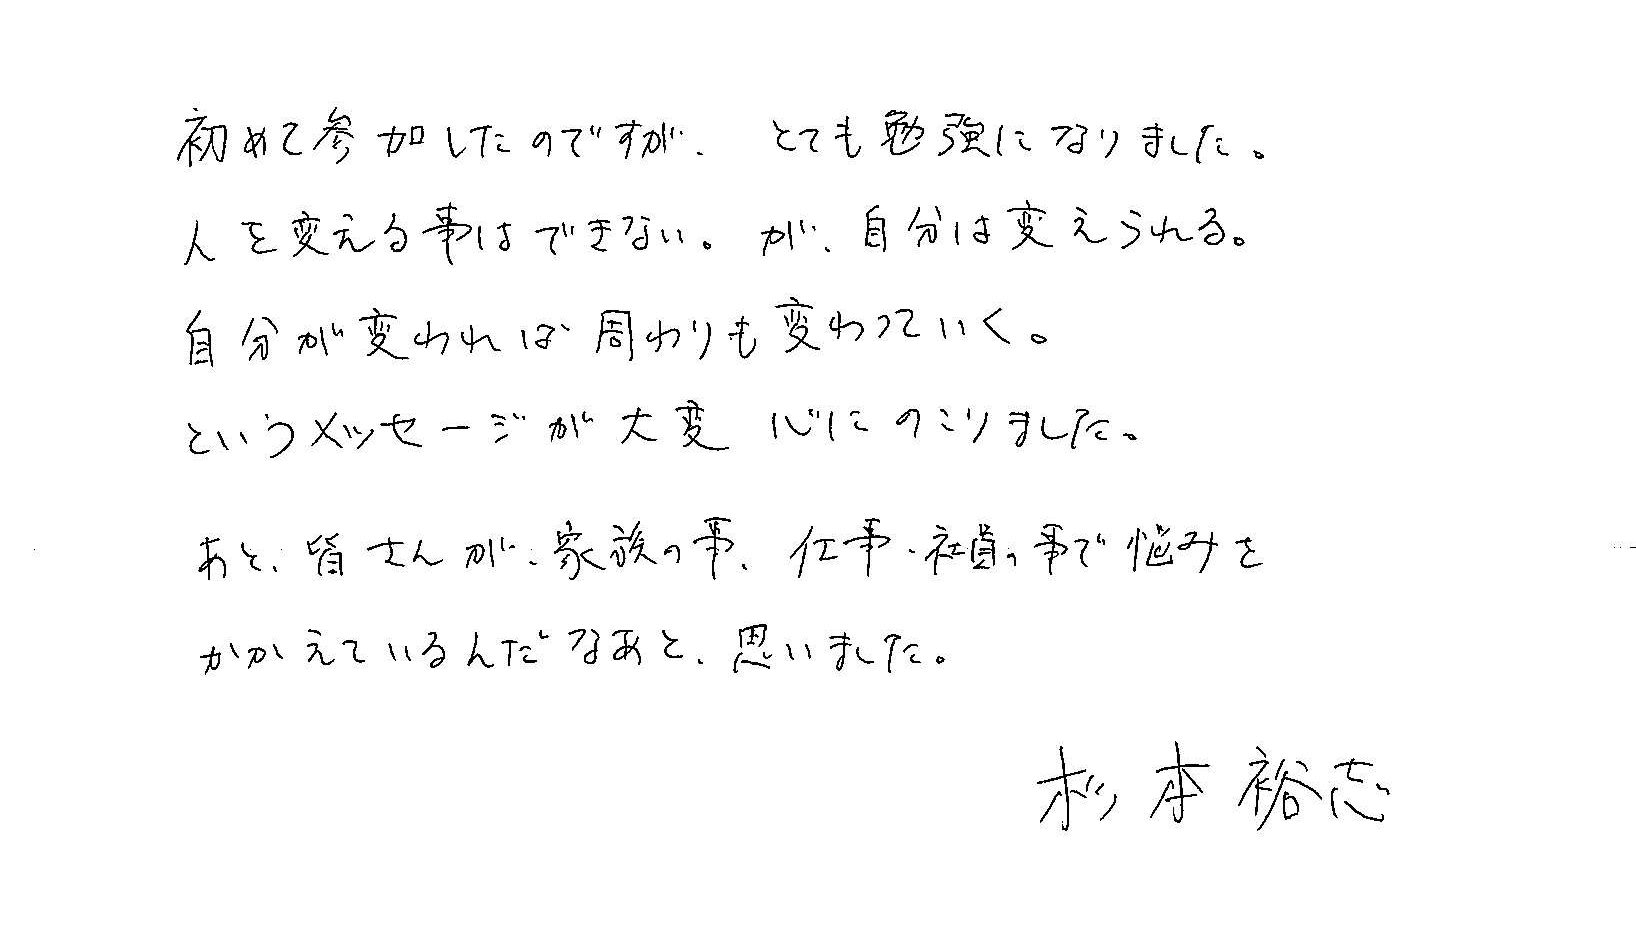 初めて参加したのですが、とても勉強になりました。
人を変える事はできない。が、自分は変えられる。
自分が変われば周わりも変わっていく。
というメッセージが大変 心にのこりました。
あと、皆さんが、家族の事、仕事・社員の事で悩みを
かかえているんだなあと、思いました。
杉本裕志